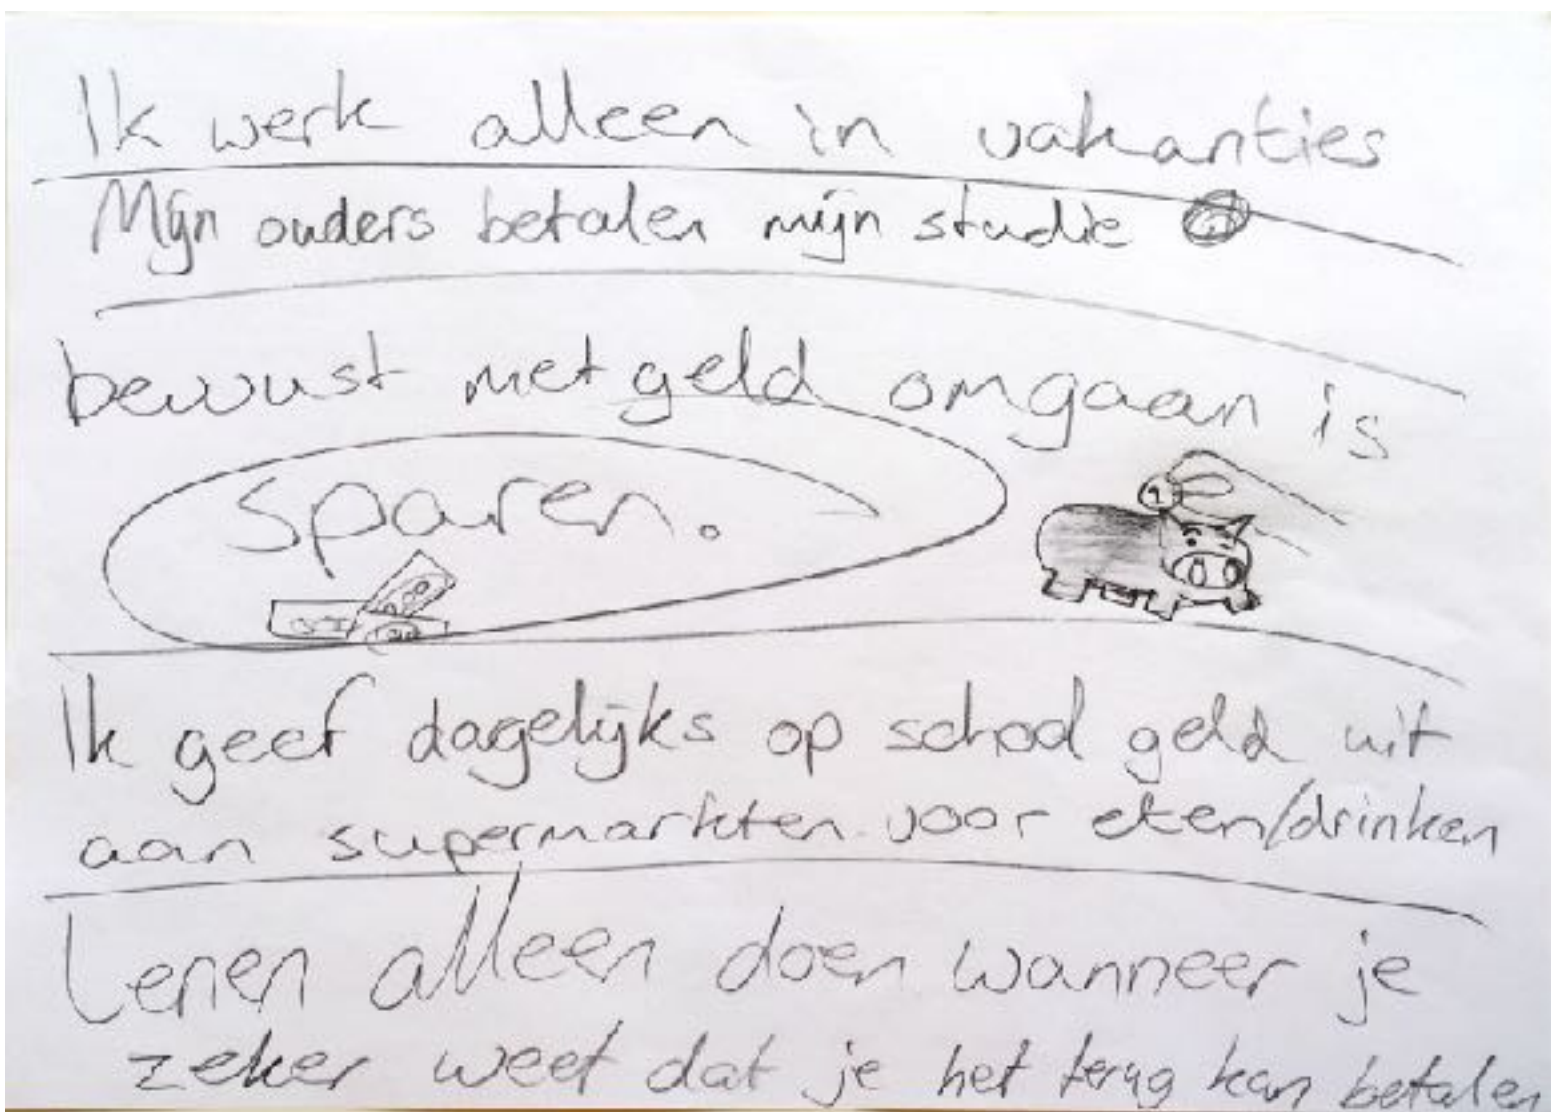 Ik werk alleen in vakanties
Mijn ouders betalen mijn studie
bewust met geld omgaan is
sparen.
Ik geef dagelijks op school geld uit
aan supermarkten voor eten/drinken
Lenen alleen doen wanneer je
zeker weet dat je het terug kan betalen